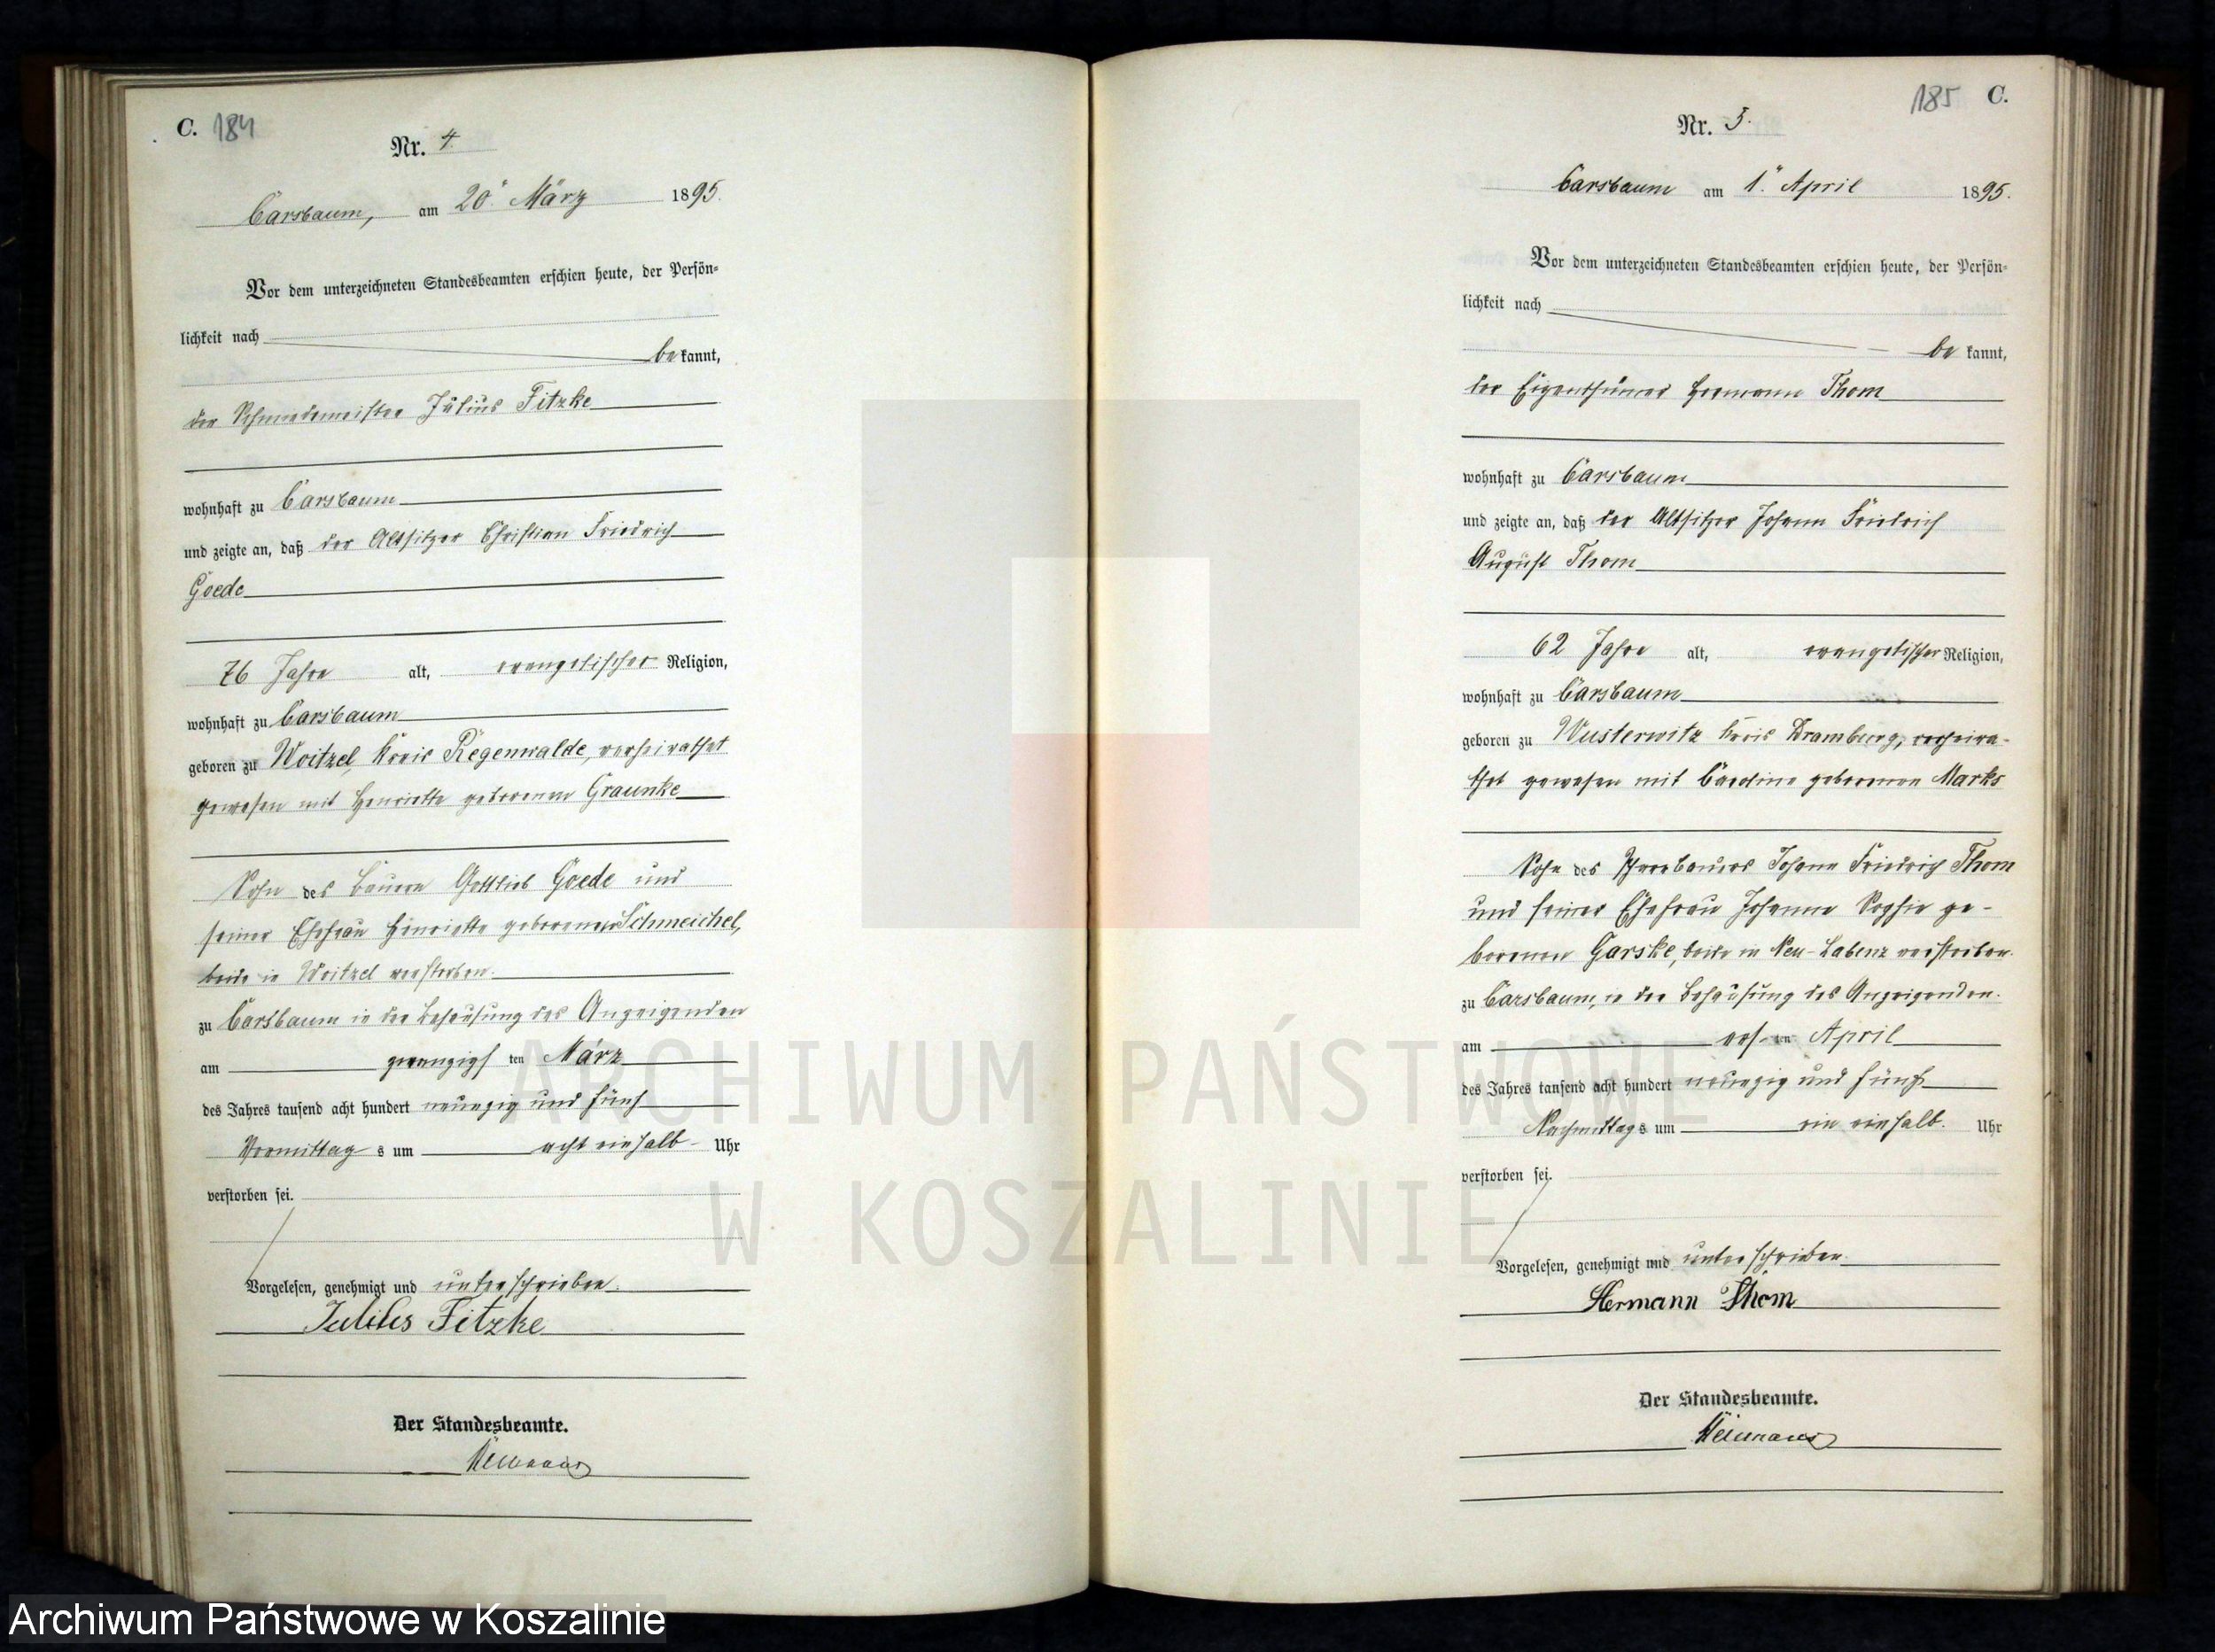 C. 184
Nr. 4.
Carsbaum, am 20ⁿ März 1895.
Vor dem unterzeichneten Standesbeamten erschien heute, der Persön-
lichkeit nach
be kannt,
der Schmiedemeister Julius Fitzke
wohnhaft zu Carsbaum
und zeigte an, daß der Altsitzer Christian Friedrich
Goede
76 Jahre alt, evangelischer Religion,
wohnhaft zu Carsbaum
geboren zu Woitzel, Kreis Regenwalde, verheirathet
gewesen mit Henriette geborenen Graunke
Sohn des Bauern Gottlieb Goede und
seiner Ehefrau Henriette geborenen Schmeichel,
beide in Woitzel verstorben.
zu Carsbaum in der Behausung des Anzeigenden
am zwanzigs ten März
des Jahres tausend acht hundert neunzig und fünf
Vormittag s um acht einhalb Uhr
verstorben sei.
Vorgelesen, genehmigt und unterschrieben.
Julius Fitzke
Der Standesbeamte.
185 C.
Nr. 5.
Carsbaum am 1ⁿ April 1895.
Vor dem unterzeichneten Standesbeamten erschien heute, der Persön-
lichkeit nach
be kannt,
der Eigenthümer Hermann Thom
wohnhaft zu Carsbaum
und zeigte an, daß der Altsitzer Johann Friedrich
August Thom
62 Jahre alt, evangelischer Religion,
wohnhaft zu Carsbaum
geboren zu Wusterwitz Kreis Dramburg, verheira-
thet gewesen mit Caroline geborenen Marks
Sohn des Johann Friedrich Thom
und seiner Ehefrau Johanne Sophie ge-
borenen Garske, beide in Neu-Labenz verstorben.
zu Carsbaum, in der Behausung des Anzeigenden.
am ers ten April
des Jahres tausend acht hundert neunzig und fünf
Nachmittag s um ein einhalb Uhr
verstorben sei.
Vorgelesen, genehmigt und unterschrieben.
Hermann Thom
Der Standesbeamte.
ARCHIWUM PAŃSTWOWE
W KOSZALINIE
Archiwum Państwowe w Koszalinie